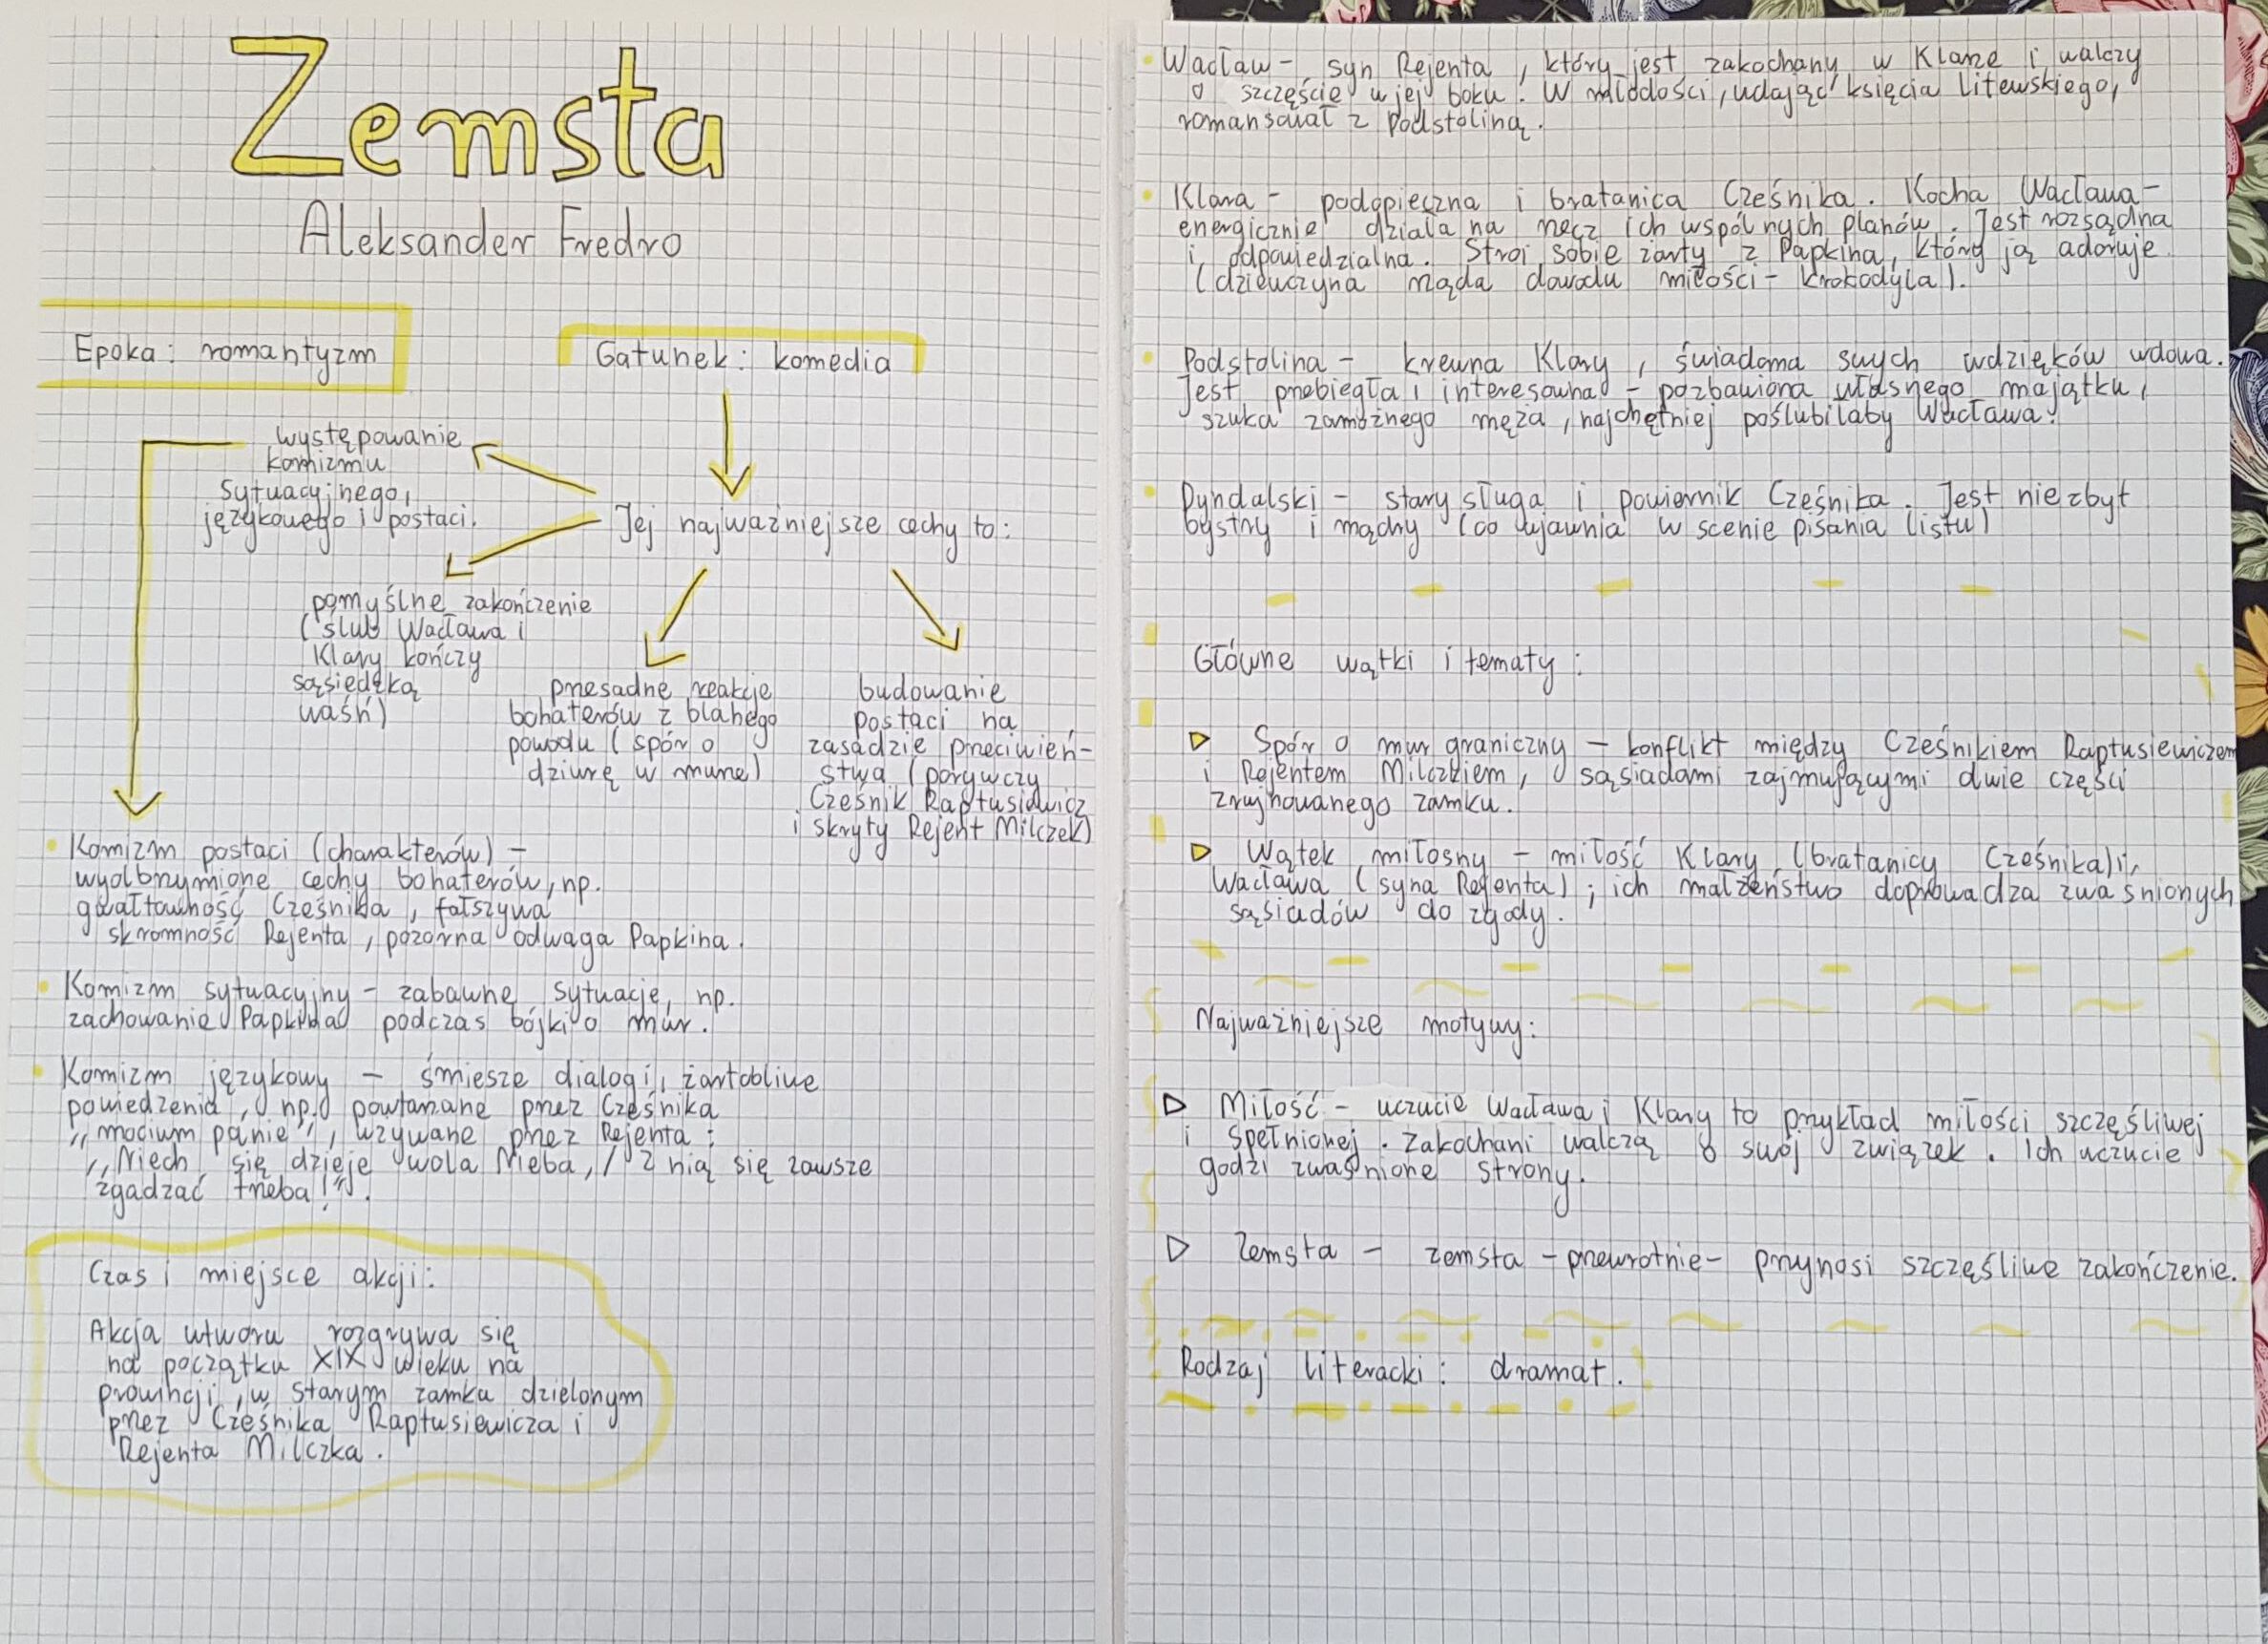 Zemsta
Aleksander Fredro
Epoka: romantyzm
Gatunek: komedia
występowanie
komizmu
sytuacyjnego,
językowego i postaci.
Jej najważniejsze cechy to:
pomyślne zakończenie
(ślub Wacława i
Klary kończy
sąsiedzką
waśń)
przesadne reakcje
bohaterów z błahego
powodu (spór o
dziurę w murze)
budowanie
postaci na
zasadzie przeciwień-
stwa (porywczy
Cześnik Raptusiewicz
i skryty Rejent Milczek)
• Komizm postaci (charakterów) –
wyolbrzymione cechy bohaterów, np.
gwałtowność Cześnika, fałszywa
skromność Rejenta, pozorna odwaga Papkina.
• Komizm sytuacyjny – zabawne sytuacje, np.
zachowanie Papkina podczas bójki o mur.
• Komizm językowy – śmiesze dialogi, żartobliwe
powiedzenia, np. powtarzane przez Cześnika
„mocium panie”, używane przez Rejenta:
„Niech się dzieje wola Nieba, / Z nią się zawsze
zgadzać trzeba!”.
Czas i miejsce akcji:
Akcja utworu rozgrywa się
na początku XIX wieku na
prowincji, w starym zamku dzielonym
przez Cześnika Raptusiewicza i
Rejenta Milczka.
• Wacław – syn Rejenta, który jest zakochany w Klarze i walczy
o szczęście u jej boku. W młodości, udając księcia litewskiego,
romansował z Podstoliną.
• Klara – podopieczna i bratanica Cześnika. Kocha Wacława –
energicznie działa na rzecz ich wspólnych planów. Jest rozsądna
i odpowiedzialna. Stroi sobie żarty z Papkina, który ją adoruje
(dziewczyna żąda dowodu miłości – krokodyla).
• Podstolina – krewna Klary, świadoma swych wdzięków wdowa.
Jest przebiegła i interesowna – pozbawiona własnego majątku,
szuka zamożnego męża, najchętniej poślubiłaby Wacława.
• Dyndalski – stary sługa i powiernik Cześnika. Jest niezbyt
bystry i mądry (co ujawnia w scenie pisania listu)
Główne wątki i tematy:
▷ Spór o mur graniczny – konflikt między Cześnikiem Raptusiewiczem
i Rejentem Milczkiem, sąsiadami zajmującymi dwie części
zrujnowanego zamku.
▷ Wątek miłosny – miłość Klary (bratanicy Cześnika) i
Wacława (syna Rejenta); ich małżeństwo doprowadza zwaśnionych
sąsiadów do zgody.
Najważniejsze motywy:
▷ Miłość – uczucie Wacława i Klary to przykład miłości szczęśliwej
i spełnionej. Zakochani walczą o swój związek. Ich uczucie
godzi zwaśnione strony.
▷ Zemsta – zemsta – przewrotnie – przynosi szczęśliwe zakończenie.
Rodzaj literacki: dramat.